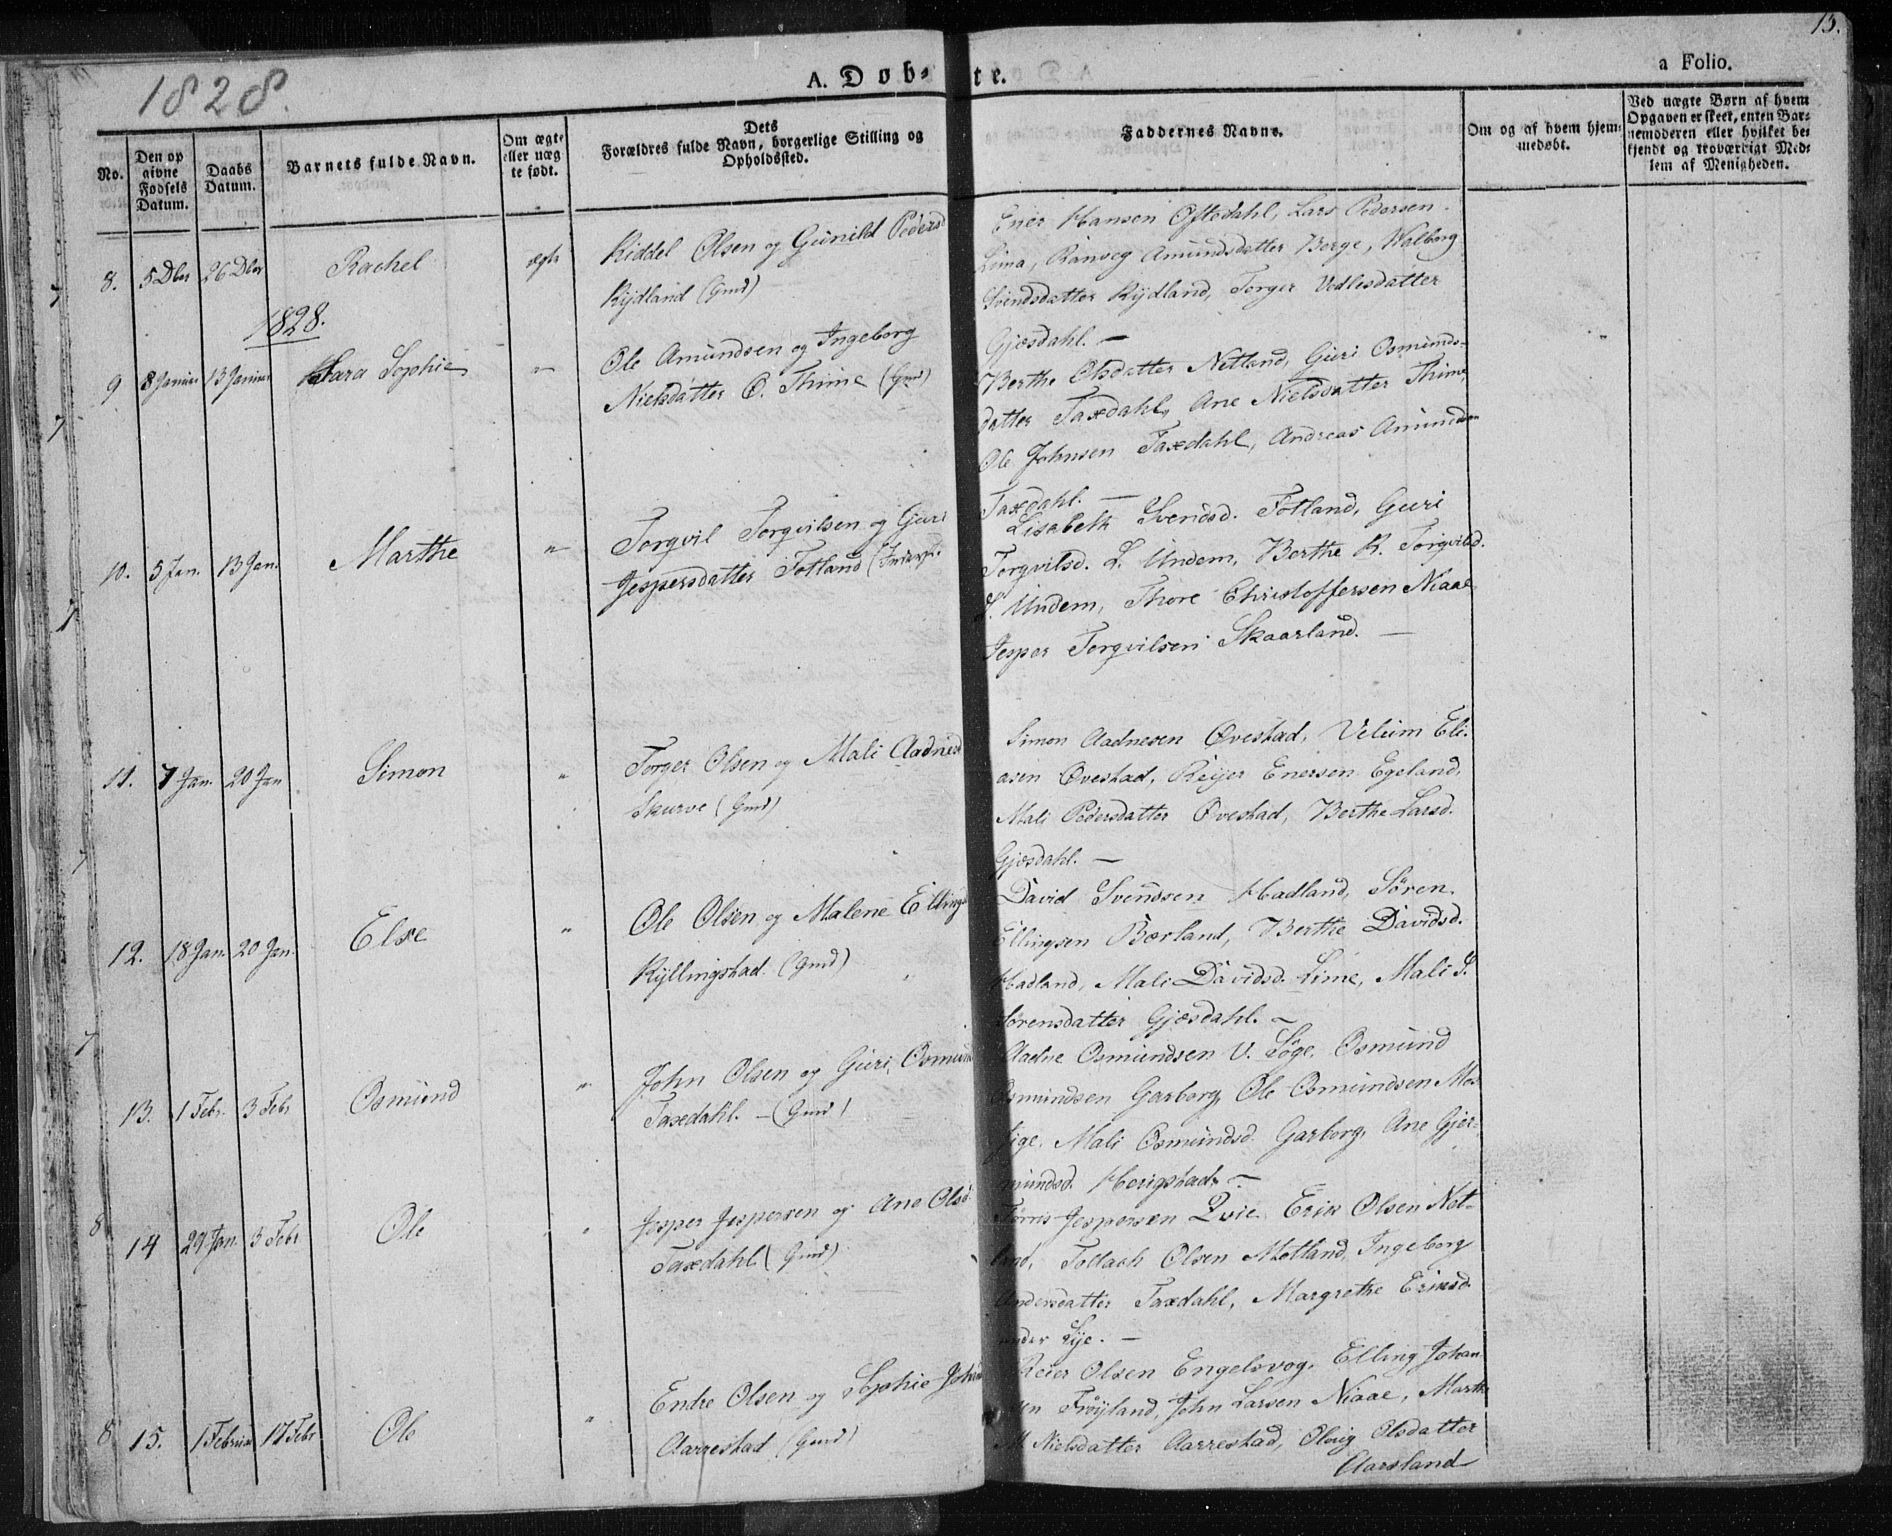 13.
1828.
A. Døb-
te.
a Folio.
No.
Den op
givne
Fødsels
Datum.
Daabs
Datum.
Barnets fulde Navn.
Om ægte
eller uæg
te født.
Dets
Forældres fulde Navn, borgerlige Stilling og
Opholdssted.
Faddernes Navne.
Om og af hvem hjem-
medøbt.
Ved uægte Børn af hvem
Opgaven er skeet, enten Bar-
nemoderen eller hvilket be-
kjendt og troværdigt Med-
lem af Menigheden.
8. 5 Dbr 26 Dbr Rachel ægte
Riddel Olsen og Gunild Pedersd
Rydland (Gmd)
Ener Hansen Oftedahl, Lars Pedersen
Lima, Ranveg Amundsdatter Borge, Walborg
Svendsdatter Rydland, Torger Vedlesdatter
Gjæsdahl. —
1828.
9 8 Januar 13 Januar Sara Sophie "
Ole Amundsen og Ingeborg
Nielsdatter O. Thime (Gmd)
Berthe Olsdatter Netland, Guri Osmunds-
datter Taxdahl, Ane Nielsdatter Thime,
Ole Johnsen Taxdahl, Andreas Amundsen
Taxdahl. —
10. 5 Jan. 13 Jan. Marthe "
Torgvil Torgvilsen og Guri
Jespersdatter Fotland
Lisabeth Svendsd. Fotland, Guri
Torgvilsd. L. Undem, Berthe K. Torgvilsd.
L. Undem, Thore Christoffersen Niaae
Jesper Torgvilsen Skaarland. —
11. 7 Jan. 20 Jan Simon "
Torger Olsen og Mali Aadnesd
Skurve (Gmd)
Simon Aadnesen Øvestad, Velum Eli-
asen Øvestad, Reyer Enersen Egeland,
Mali Pedersdatter Øvestad, Berthe Larsd.
Gjæsdahl. —
12. 18 Jan. 20 Jan. Else "
Ole Olsen og Malene Ellings
Kyllingstad. (Gmd)
David Svendsen Hadland, Søren
Ellingsen Bærland, Berthe Davidsd.
Hadland, Mali Davidsd. Lime, Mali S.
Sørensdatter Gjæsdahl. —
13. 1 Febr. 3 Febr Osmund "
John Olsen og Guri Osmund
Taxedahl. — (Gmd)
Aadne Osmundsen V. Søge, Osmund
Osmundsen Garborg, Ole Osmundsen Mos-
sige, Mali Osmundsd. Garborg, Ane Gjer-
mundsd. Herigstad. —
8 14 29 Jan. 3 Febr Ole "
Jesper Jespersen og Ane Olsd.
Taxedahl (Gmd)
Tørris Jespersen Qvie, Erik Olsen Net-
land, Tollach Olsen Motland, Ingeborg
Andersdatter Taxdahl, Margrethe Eriksd.
under Lye. —
8 15. 1 Februar 17 Febr Ole "
Endre Olsen og Sophie Johan
Aarrestad (Gmd)
Reier Olsen Engelsvog, Elling Johan-
sen Frøyland, John Larsen Niaae, Marthe
M. Nielsdatter Aarrestad, Olevig Olsdatter
Aarsland